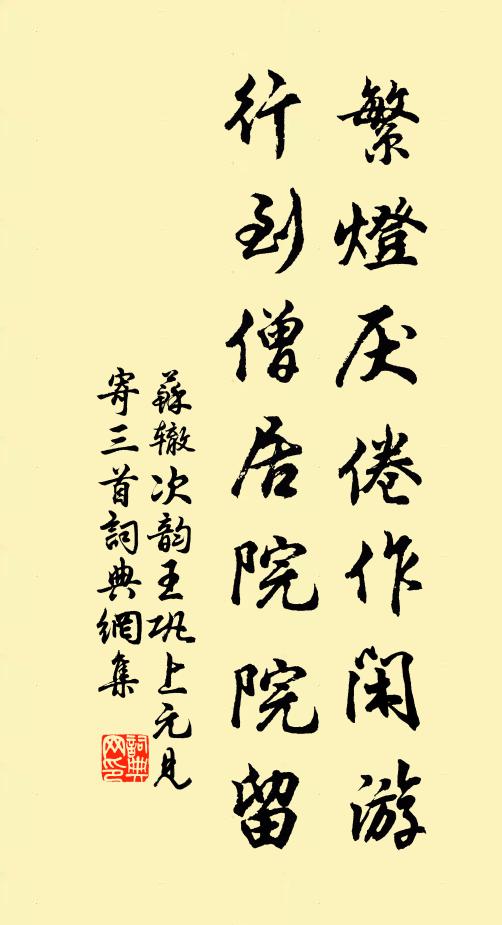 繁燈厌倦作闲游
行到僧居院院留
蘇辙次韵王巩上元見
寄三首詞典網集
詞典
网印